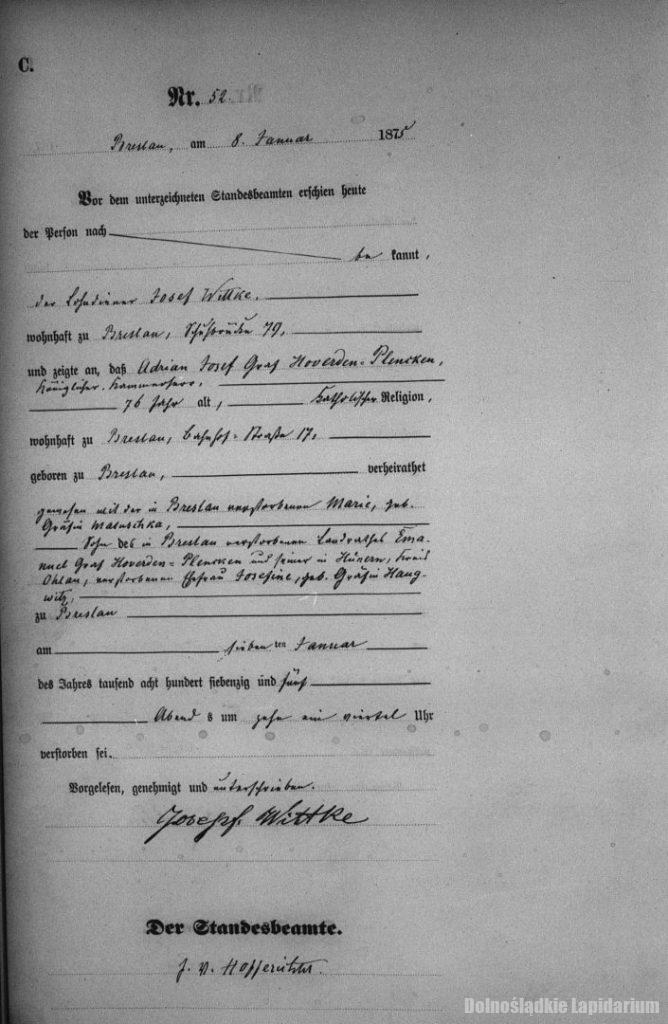 C.
Nr. 52.
Breslau, am 8. Januar 1875
Vor dem unterzeichneten Standesbeamten erschien heute
der Person nach
be kannt,
der Lohndiener Josef Wittke,
wohnhaft zu Breslau, Schuhbrücke 79,
und zeigte an, daß Adrian Josef Graf Hoverden=Plencken,
Königlicher Kammerherr,
76 Jahr alt, Katholischer Religion,
wohnhaft zu Breslau, Bahnhof=Straße 17,
geboren zu Breslau, verheirathet
gewesen mit der in Breslau verstorbenen Marie, geb.
Gräfin Matuschka,
Sohn des in Breslau verstorbenen Landrathes Ema-
nuel Graf Hoverden=Plencken und seiner in Hünern, Kreis
Ohlau, verstorbenen Ehefrau Josefine, geb. Gräfin Haug-
witz,
zu Breslau
am sieben ten Januar
des Jahres tausend acht hundert siebenzig und fünf
Abend s um zehn ein viertel Uhr
verstorben sei.
Vorgelesen, genehmigt und unterschrieben.
Joseph Wittke
Der Standesbeamte.
J. V.
Dolnośląskie Lapidarium